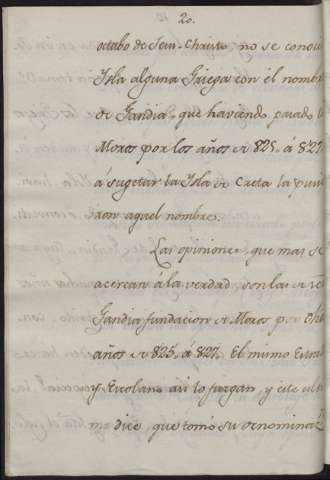 20.
octabo de Jesu-Christo no se conocí
Ysla alguna Griega con el nombre
de Gandia, que haviendo pasado l
Moros por los años de 825, á 827
á sugetar la Ysla de Creta la pusie
ron aquel nombre.
Las opiniones, que mas se
acercan á la verdad, son las de ser
Gandia fundacion de Moros por
años de 825, á 827. El mismo
y Escolano asi lo juzgan, y este ulti
mo dice, que tomó su denominac